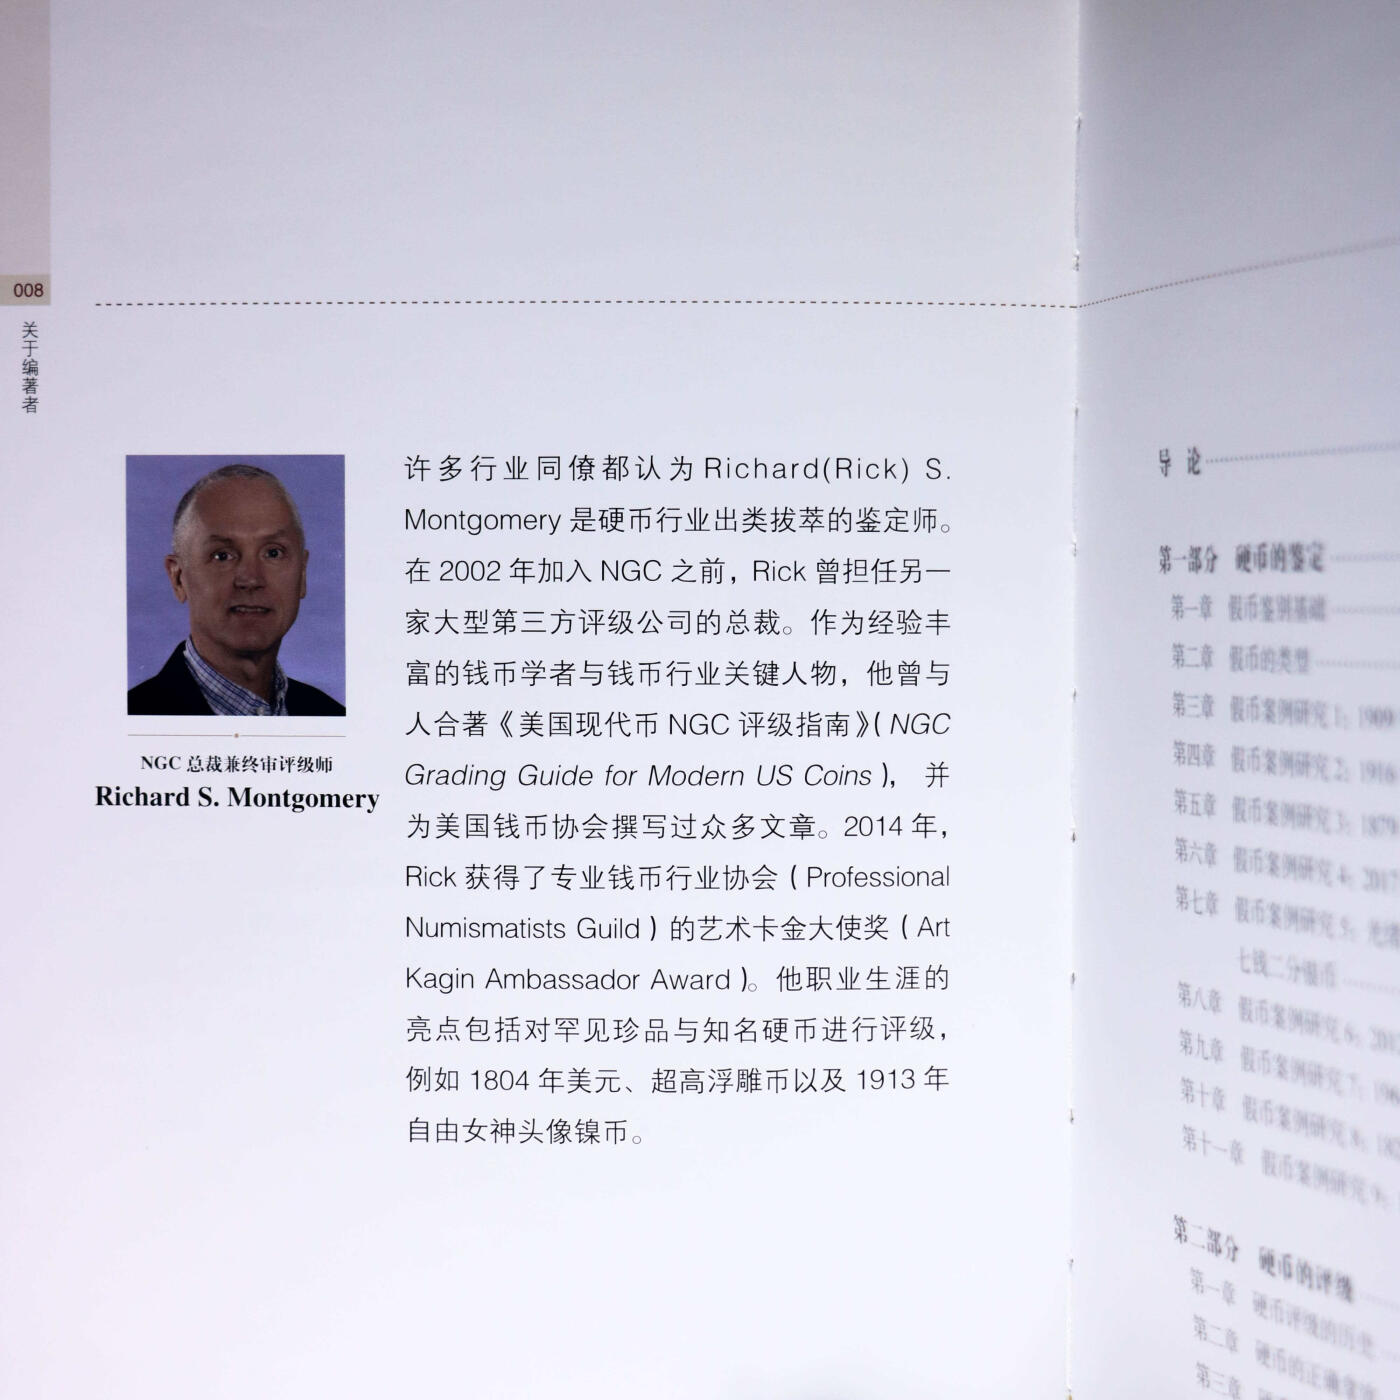 008
关于编著者
NGC 总裁兼终审评级师
Richard S. Montgomery
许多行业同僚都认为Richard(Rick) S.
Montgomery 是硬币行业出类拔萃的鉴定师。
在 2002 年加入 NGC 之前，Rick 曾担任另一
家大型第三方评级公司的总裁。作为经验丰
富的钱币学者与钱币行业关键人物，他曾与
人合著《美国现代币 NGC 评级指南》( NGC
Grading Guide for Modern US Coins )， 并
为美国钱币协会撰写过众多文章。2014 年，
Rick 获得了专业钱币行业协会 ( Professional
Numismatists Guild ) 的艺术卡金大使奖 ( Art
Kagin Ambassador Award )。他职业生涯的
亮点包括对罕见珍品与知名硬币进行评级，
例如 1804 年美元、超高浮雕币以及 1913 年
自由女神头像镍币。
导 论
第一部分 硬币的鉴定
第一章 假币鉴别基础
第二章 假币的类型
第三章 假币案例研究 1：1909
第四章 假币案例研究 2：1916
第五章 假币案例研究 3：1879
第六章 假币案例研究 4：2017
第七章 假币案例研究 5：光绪
七钱二分银币
第八章 假币案例研究 6：
第九章 假币案例研究 7：
第十章 假币案例研究 8：
第十一章 假币案例研究 9：
第二部分 硬币的评级
第一章 硬币评级的历史
第二章 硬币的正确
第三章